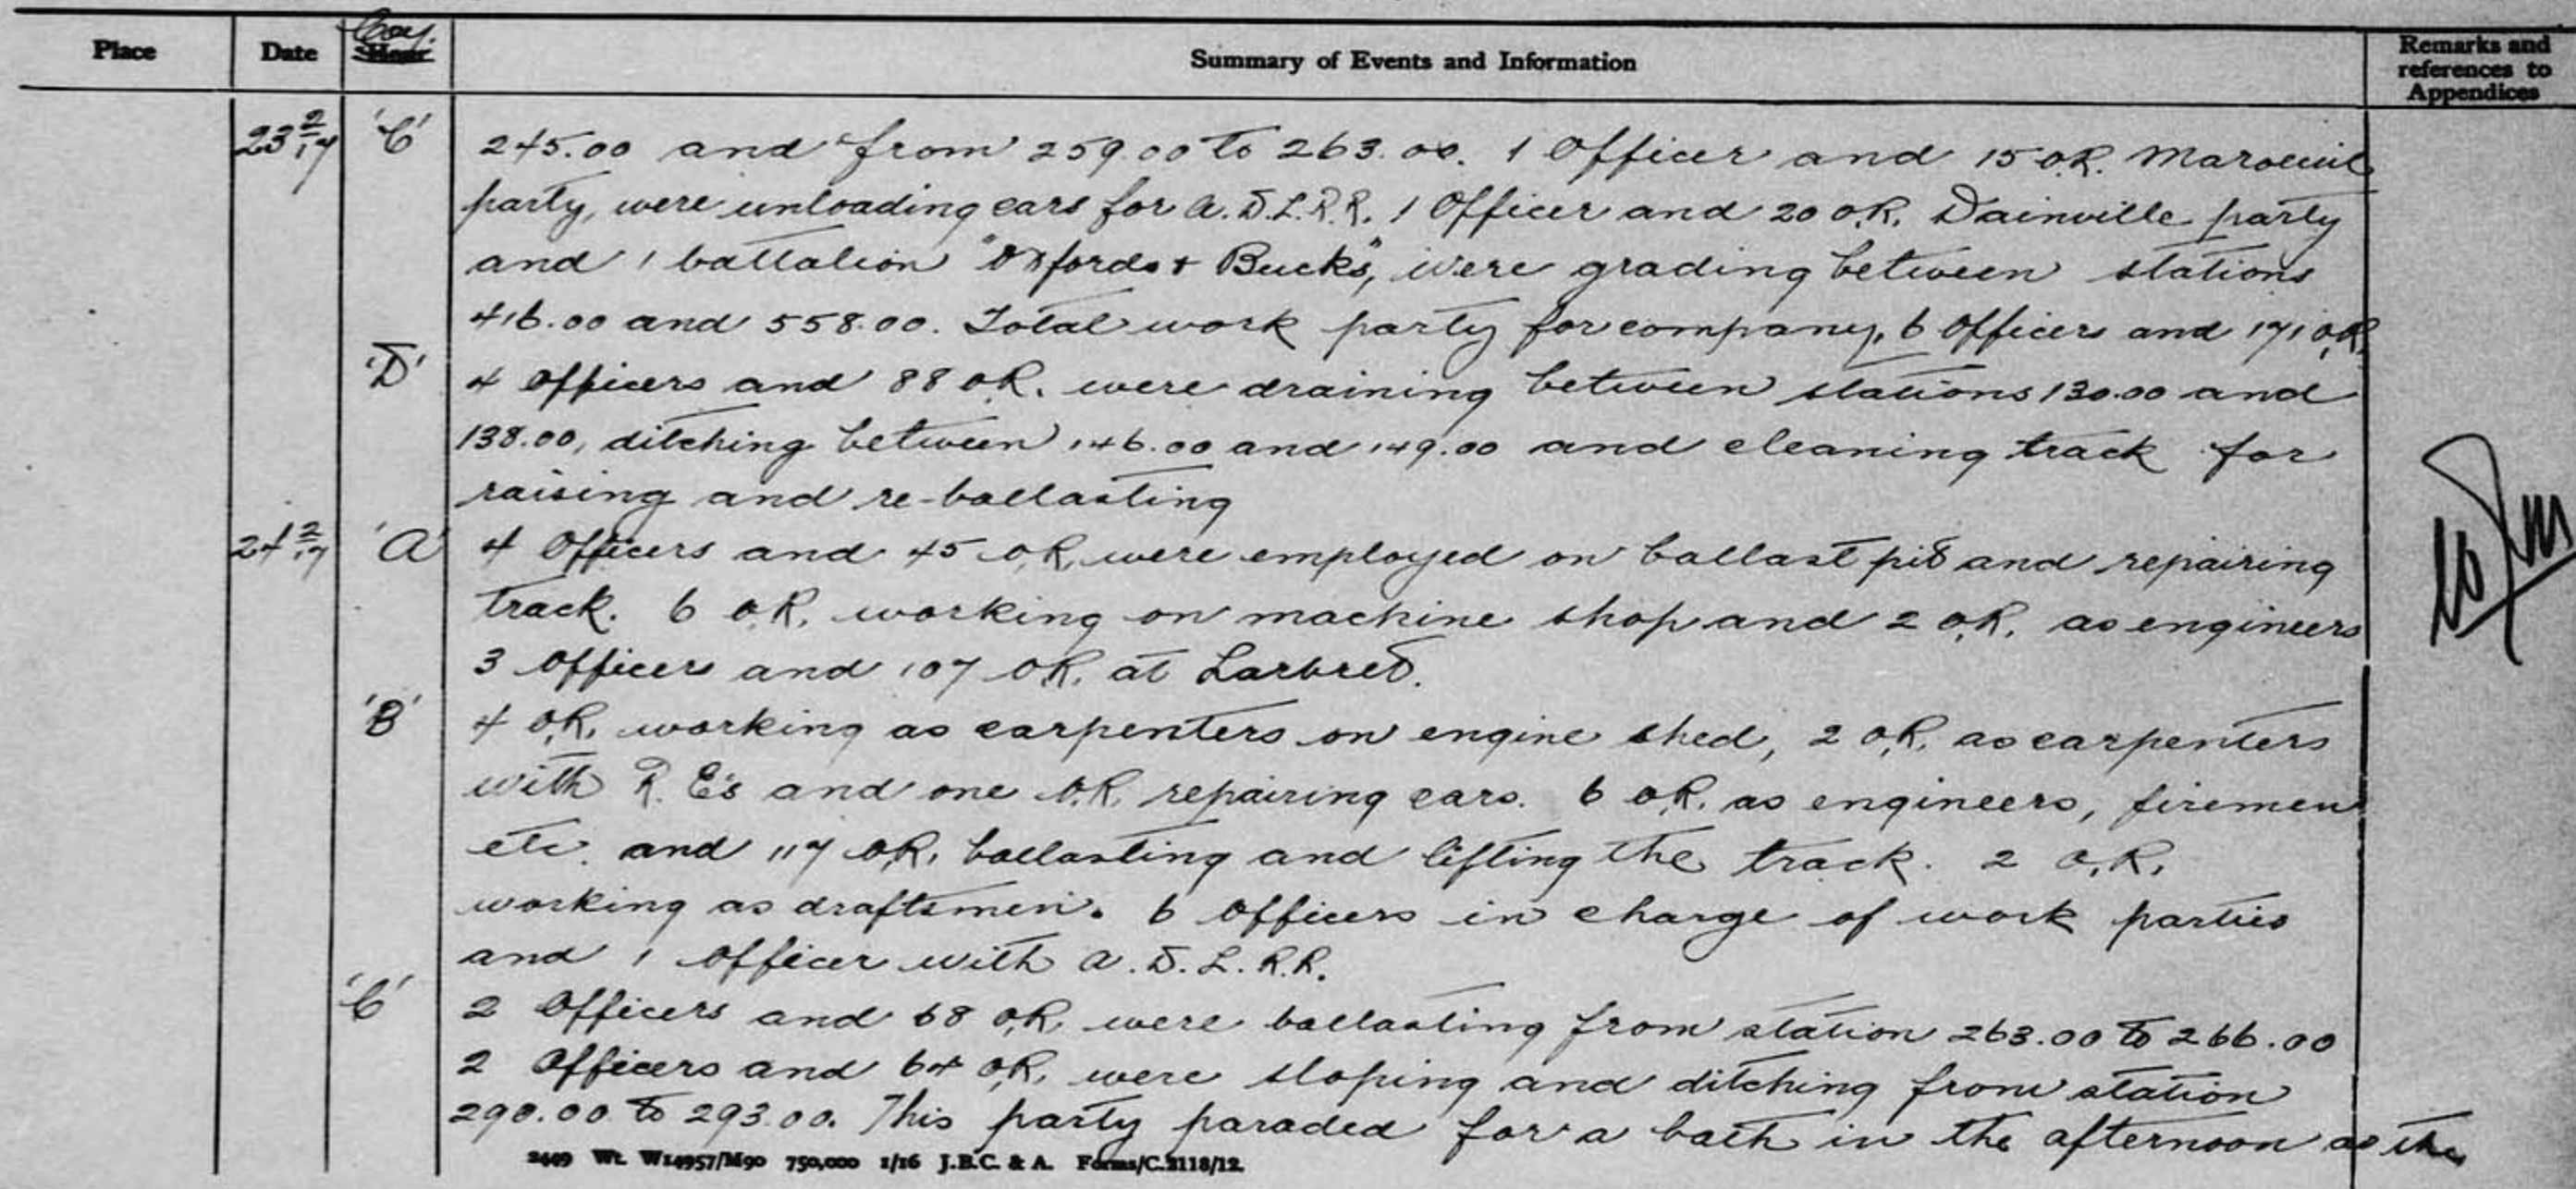 Place Date Coy. Hour Summary of Events and Information Remarks and references to Appendices
23 2/17 'C' 245.00 and from 259.00 to 263.00. 1 Officer and 15 O.R. Maroeuil
party, were unloading cars for A.D.L.R.R. 1 Officer and 20 O.R. Dainville party
and 1 battalion "Oxfords & Bucks", were grading between stations
416.00 and 558.00. Total work party for company, 6 Officers and 171 O.R.
'D' 4 Officers and 88 O.R. were draining between stations 130.00 and
138.00, ditching between 146.00 and 149.00 and cleaning track for
raising and re-ballasting
24 2/17 'A' 4 Officers and 45 O.R. were employed on ballast pit and repairing
track. 6 O.R. working on machine shop and 2 O.R. as engineers
3 Officers and 107 O.R. at Larbret.
'B' 4 O.R. working as carpenters on engine shed, 2 O.R. as carpenters
with R.E's and one O.R. repairing cars. 6 O.R. as engineers, firemen
etc. and 117 O.R. ballasting and lifting the track. 2 O.R.
working as draftsmen. 6 Officers in charge of work parties
and 1 Officer with A.D.L.R.R.
'C' 2 Officers and 68 O.R. were ballasting from station 263.00 to 266.00
2 Officers and 64 O.R. were sloping and ditching from station
290.00 to 293.00. This party paraded for a bath in the afternoon as the
2449 Wt. W14957/M90 750,000 1/16 J.B.C. & A. Forms/C.2118/12.